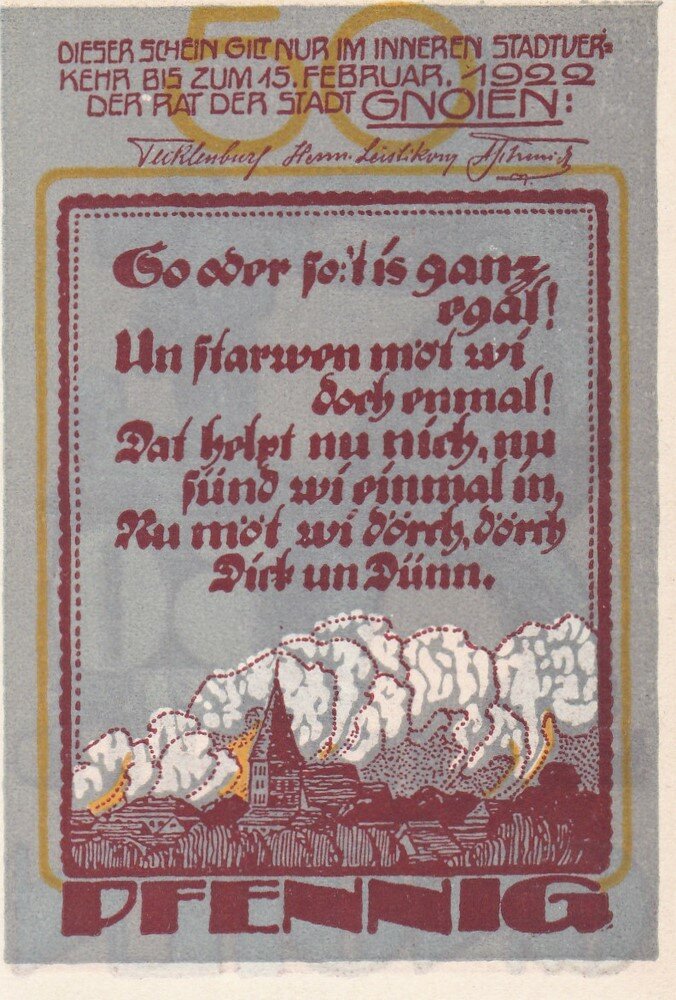 50
DIESER SCHEIN GILT NUR IM INNEREN STADTVER=
KEHR BIS ZUM 15. FEBRUAR. 1922
DER RAT DER STADT GNOIEN:
Tecklenburg Herm. Leistikow Schmidt
So oder so: 't is ganz
egal!
Un starwen möt wi
doch enmal!
Dat helpt nu nich, nu
sünd wi einmal in,
Nu möt wi dörch, dörch
Dick un Dünn.
PFENNIG